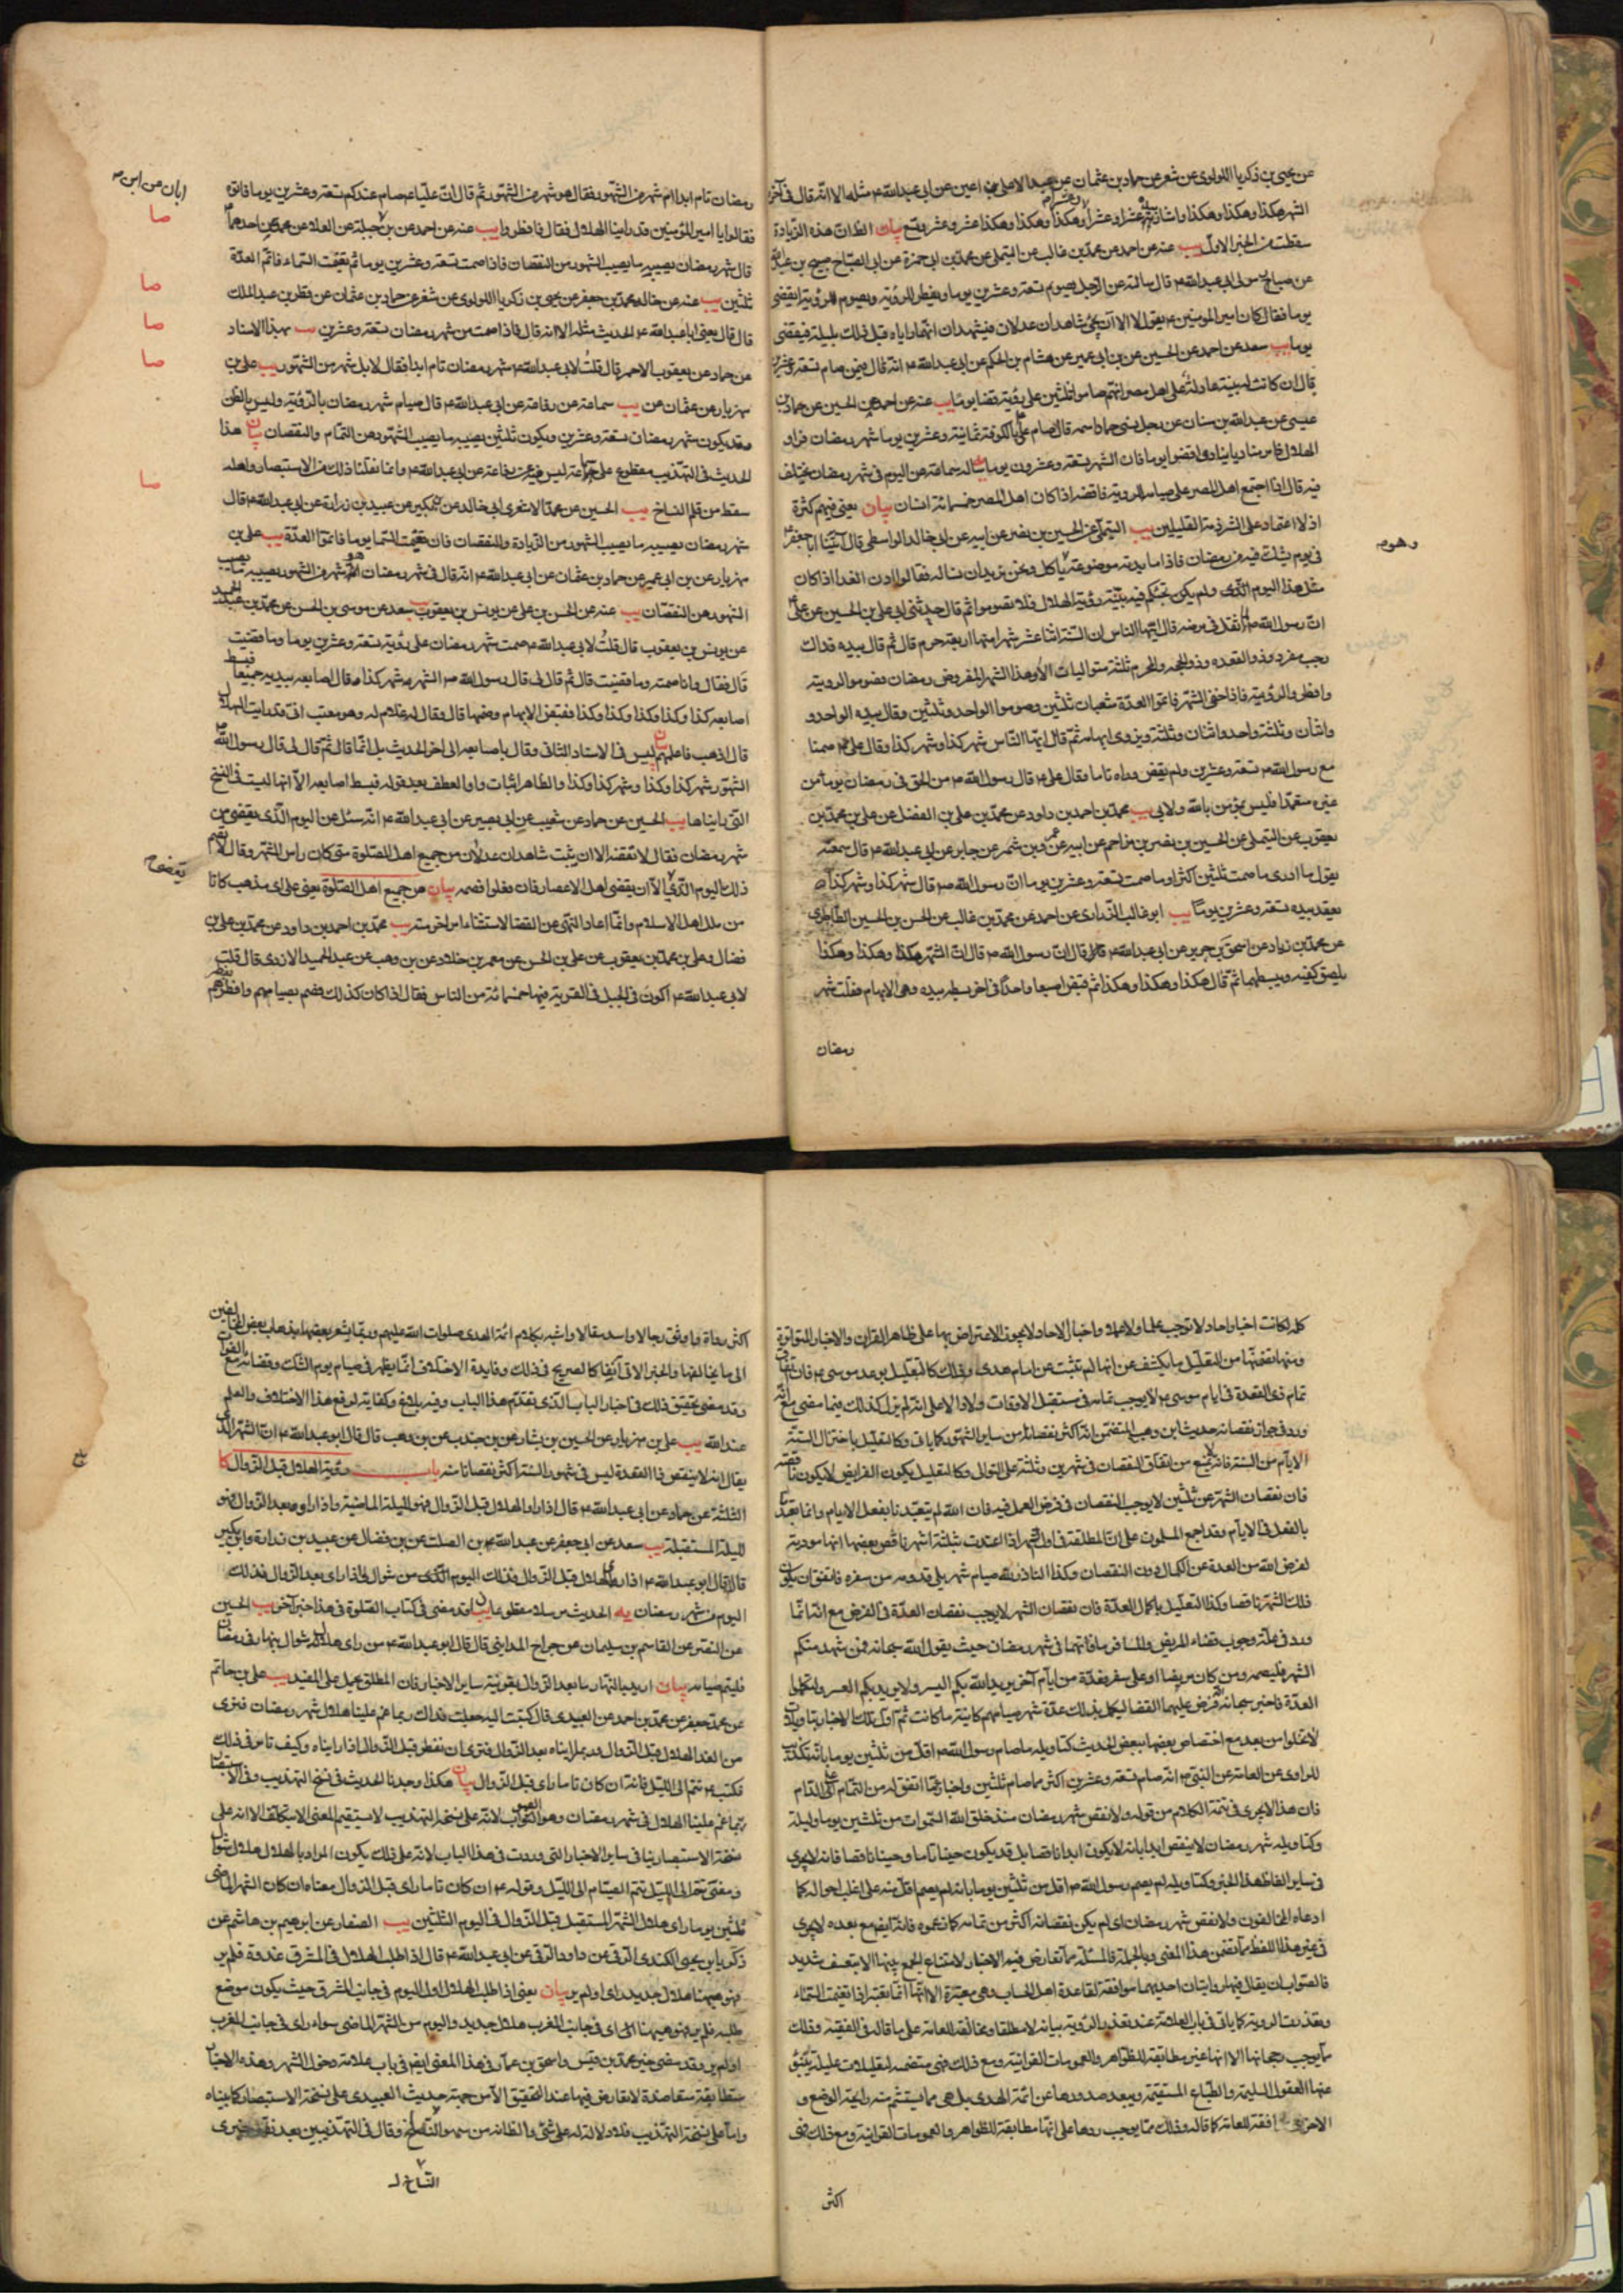 عن يحيى بن زكريا اللؤلؤي عن شعر عن حماد بن عثمان عن عبد الاعلى بن اعين عن ابي عبد الله ع مثله الا انه قال في آخره
الشهر هكذا وهكذا وهكذا واشار بيده عشرا وعشرا وهكذا وهكذا وهكذا عشر وعشر وتسع بيان الظان هذه الزيادة
سقطت من الخبر الاول يب عنه عن احمد عن محمد بن غالب عن التيملي عن محمد بن ابي حمزة عن ابي الصباح صبيح بن عبد الله
عن صباح مولى ابي عبد الله ع قال سالته عن الرجل يصوم تسعة وعشرين يوما ويفطر للرؤية ويصوم للرؤية ايقضي
يوما فقال كان امير المؤمنين ع يقول لا الا ان يجئ شاهدان عدلان فيشهدان انهما راياه قبل ذلك بليلة فيقضي
يوما يب سعد عن احمد عن الحسين عن بن ابي عمير عن هشام بن الحكم عن ابي عبد الله ع انه قال فيمن صام تسعة وعشرين
قال ان كانت له بينة عادلة على اهل مصر انهم صاموا ثلثين على رؤية قضى يوما يب عنه عن احمد عن الحسين عن حماد بن
عيسى عن عبد الله بن سنان عن رجل نسي حماد اسمه قال صام علي ع بالكوفة ثمانية وعشرين يوما شهر رمضان فراوا
الهلال فامر مناديا ينادي اقضوا يوما فان الشهر تسعة وعشرون يوما يه ساله سماعة عن اليوم في شهر رمضان يختلف
فيه قال اذا اجتمع اهل المصر على صيامه للرؤية فاقضه اذا كان اهل المصر خمسمائة انسان بيان يعني فيهم كثرة
اذ لا اعتماد على الشرذمة القليلين يب التيملي عن الحسين بن نصر عن ابيه عن ابي خالد الواسطي قال اتينا ابا جعفر ع
في يوم يشك فيه من رمضان فاذا مايدته موضوعة وهو ياكل ونحن نريد ان نساله فقال ادنوا الغدا اذا كان
مثل هذا اليوم الذي ولم يكن تجئكم فيه بينة رؤية الهلال فلا تصوموا ثم قال حدثني ابي علي بن الحسين عن علي ع
ان رسول الله ص لما ثقل في مرضه قال ايها الناس ان السنة اثنا عشر شهرا منها اربعة حرم قال ثم قال بيده فذاك
رجب مفرد وذو القعده وذو الحجة والمحرم ثلثة متواليات الا وهذا الشهر المفروض رمضان فصوموا لرويته
وافطروا لرؤيته فاذا خفي الشهر فاتموا العدة شعبان ثلثين وصوموا الواحد وثلثين وقال بيده الواحد و
واثنان وثلثة واحد واثنان وثلثة ويزوي ابهامه ثم قال ايها الناس شهر كذا وشهر كذا وقال علي ع صمنا
مع رسول الله ص تسعة وعشرين ولم يقض وراه تاما وقال علي ع قال رسول الله ص من الحق في رمضان يوما من
غيره متعمدا فليس بمؤمن بالله ولا بي يب محمد بن احمد بن داود عن محمد بن علي بن الفضل عن علي بن محمد بن
يعقوب عن التيملي عن الحسين بن نصر بن مزاحم عن ابيه عن عمرو بن شمر عن جابر عن ابي عبد الله ع قال سمعته
يقول ما ادري ما صمت ثلثين اكثر او ما صمت تسعة وعشرين يوما ان رسول الله ص قال شهر كذا وشهر كذا
يعقد بيده تسعة وعشرين يوما يب ابو غالب الزراري عن احمد عن محمد بن غالب عن الحسن بن الحسين الطاطري
عن محمد بن زياد عن اسحق بن جرير عن ابي عبد الله ع قال قال ان رسول الله ص قال ان الشهر هكذا وهكذا وهكذا
يلصق كفيه ويبسطهما ثم قال هكذا وهكذا وهكذا ثم قبض اصبعا واحدة في اخر بسطه بيده وهي الابهام فقلت شهر
رمضان
وهو
رمضان تام ابدا ام شهر من الشهور فقال هو شهر من الشهور ثم قال ان عليا ع صام عندكم تسعة وعشرين يوما فاتوه
فقالوا يا امير المؤمنين قد راينا الهلال فقال فافطروا يب عنه عن احمد عن بن جبلة عن العلا عن محمد عن احدهما ع
قال شهر رمضان يصيبه ما يصيب الشهور من النقصان فاذا صمت تسعة وعشرين يوما ثم تغيمت السماء فاتم العدة
ثلثين يب عنه عن خاله محمد بن جعفر عن يحيى بن زكريا اللؤلؤي عن شعر عن حماد بن عثمان عن قطر بن عبد الملك
قال قال يعني ابا عبد الله ع الحديث مثله الا انه قال فاذا صمت من شهر رمضان تسعة وعشرين يب بهذا الاسناد
عن حماد عن يعقوب الاحمر قال قلت لابي عبد الله ع شهر رمضان تام ابدا فقال لا بل شهر من الشهور يب علي بن
مهزيار عن عثمان عن يب سماعة عن رفاعة عن ابي عبد الله ع قال صيام شهر رمضان بالرؤية وليس بالظن
وقد يكون شهر رمضان تسعة وعشرين ويكون ثلثين يصيبه ما يصيب الشهور من التمام والنقصان بيان هذا
الحديث في التهذيب مقطوع على سماعة ليس فيه عن رفاعة عن ابي عبد الله ع وانما نقلنا ذلك من الاستبصار ولعله
سقط من قلم النساخ يب الحسين عن محمد الاشعري ابي خالد عن بن بكير عن عبيد بن زرارة عن ابي عبد الله ع قال
شهر رمضان يصيبه ما يصيب الشهور من الزيادة والنقصان فان تغيمت السما يوما فاتموا العدة يب علي بن
مهزيار عن بن ابي عمير عن حماد بن عثمان عن ابي عبد الله ع انه قال في شهر رمضان هو شهر من الشهور يصيبه ما يصيب
الشهور من النقصان يب عنه عن الحسن بن علي عن يونس بن يعقوب يب سعد عن موسى بن الحسن عن محمد بن عبد الحميد
عن يونس بن يعقوب قال قلت لابي عبد الله ع صمت شهر رمضان على رؤية تسعة وعشرين يوما وما قضيت
قال فقال وانا صمته وما قضيت قال ثم قال لي قال رسول الله ص الشهر شهر كذا وقال اصابعه بيديه جميعا فبسط
اصابعه كذا وكذا وكذا وكذا وكذا فقبض الابهام وضمها قال وقال له غلام له وهو معتب اني قد رايت الهلال
قال اذهب فاعلمهم بيان ليس في الاسناد الثاني وقال باصابعه الى اخر الحديث بل انما قال ثم قال لي قال رسول الله ص
الشهور شهر كذا وكذا وشهر كذا وكذا والظاهر اثبات واو العطف بعد قوله فبسط اصابعه الا انها ليست في النسخ
التي رايناها يب الحسين عن حماد عن شعيب عن ابي بصير عن ابي عبد الله ع انه سئل عن اليوم الذي يقضى من
شهر رمضان فقال لا تقضه الا ان يثبت شاهدان عدلان من جميع اهل الصلوة متى كان راس الشهر وقال لا تصم
ذلك اليوم الذي الا ان يقضي اهل الامصار فان فعلوا فصمه بيان من جميع اهل الصلوة يعني على اي مذهب كانا
من ملل اهل الاسلام وانما اعاد النهي عن القضا لاستثناء امر اخر منه يب محمد بن احمد بن داود عن محمد بن علي بن
فضال وعلي بن محمد بن يعقوب عن علي بن الحسن عن معمر بن خلاد عن بن وهب عن عبد الحميد الازدي قال قلت
لابي عبد الله ع اكون في الجبل في القرية فيها خمسمائة من الناس فقال اذا كان كذلك فصم بصيامهم وافطر بفطرهم
ابان عن ابن
صا
صا
صا
صا
صا
كلها كانت اخبار احاد لا توجب علما ولا عملا واخبار الاحاد لا يجوز الاعتراض بها على ظاهر القران والاخبار المتواترة
ومنها تضمنها من التعليل ما يكشف عن انها لم تثبت عن امام هدى وذلك كالتعليل بوعد موسى ع فان اتفاق
تمام ذي القعدة في ايام موسى ع لا يوجب تمامه في مستقبل الاوقات ولا دالا على انه لم يزل كذلك فيما مضى مع انه
ورد في جواز نقصانه حديث ابن وهب المتضمن انه اكثر نقصانا من ساير الشهور كما ياتي وكالتعليل باختزال الستة
الايام من السنة فانه لا يمنع من اتفاق النقصان في شهرين وثلثة على التوالي وكالتعليل بكون الفرايض لا يكون ناقصة
فان نقصان الشهر عن ثلثين لا يوجب النقصان في فرض العمل فيه فان الله لم يتعبدنا بفعل الايام وانما تعبدنا
بالفعل في الايام وقد اجمع المسلمون على ان المطلقة في اول الشهر اذا اعتدت بثلثة اشهر ناقص بعضها انها مودية
لفرض الله من العدة عن الكمال دون النقصان وكذا الناذر لله صيام شهر يلي قدومه من سفره فاتفق ان يكون
ذلك الشهر ناقصا وكذا التعليل باكمال العدة فان نقصان الشهر لا يوجب نقصان العدة في الفرض مع انه انما
ورد في علة وجوب قضاء المريض والمسافر ما فاتهما في شهر رمضان حيث يقول الله سبحانه فمن شهد منكم
الشهر فليصمه ومن كان مريضا او على سفر فعدة من ايام اخر يريد الله بكم اليسر ولا يريد بكم العسر ولتكملوا
العدة فاخبر سبحانه انه فرض عليهما القضا ليكمل بذلك عدة شهر صيامهم كاينة ما كانت ثم اول تلك الاخبار بتاويلات
لا تخلوا من بعد مع اختصاص بعضها ببعض الحديث كتاويله ما صام رسول الله ص اقل من ثلثين يوما بانه تكذيب
للراوي عن العامة عن النبي ص انه صام تسعة وعشرين اكثر مما صام ثلثين واخبار عما اتفق له من التمام على الدوام
فان هذا لا يجري في تتمة الكلام من قوله ولا نقص شهر رمضان منذ خلق الله السموات من ثلثين يوما وليلة
وكتاويله شهر رمضان لا ينقص ابدا بانه لا يكون ابدا ناقصا بل قد يكون حينا تاما وحينا ناقصا فانه لا يجري
في ساير الفاظ هذا الخبر وكتاويله لم يصم رسول الله ص اقل من ثلثين يوما بانه لم يصم اقل منه على اغلب احواله كما
ادعاه المخالفون ولا نقص شهر رمضان اي لم يكن نقصانه اكثر من تمامه كما زعموه فانه ايضا مع بعده لا يجري
في غير هذا اللفظ مما تضمن هذا المعنى وبالجملة فالمسئلة مما تعارض فيه الاخبار لامتناع الجمع بينها الا بتعسف شديد
فالصواب ان يقال فيها روايتان احديهما موافقة لقاعدة اهل الحساب وهي معتبرة الا انها انما تعتبر اذا تغيمت السماء
وتعذرت الروية كما ياتي في باب العلامة عند تعذر الرؤية بيانه لا مطلقا ومخالفة للعامة على ما قاله في الفقيه وذلك
مما يوجب رجحانها الا انها غير مطابقة للظواهر والعمومات القرانية ومع ذلك فهي متضمنة لتعليلات عليلة تنبو
عنها العقول السليمة والطباع المستقيمة ويبعد صدورها عن ائمة الهدى بل هي مما يستشم منه رايحة الوضع و
الاخرى موافقة للعامة كما قاله وذلك مما يوجب ردها على انها مطابقة للظواهر والعمومات القرانية ومع ذلك فهي
اكثر
اكثر رواة واوثق رجالا واسد مقالا واشبه بكلام ائمة الهدى صلوات الله عليهم وربما يشعر بعضها بذهاب بعض المخالفين
الى ما يخالفها والخبر الاتي آنفا كالصريح في ذلك وفايدة الاختلاف انما يظهر في صيام يوم الشك وقضائه مع الفوات
وقد مضى تحقيق ذلك في اخبار الباب الذي يتقدم هذا الباب وفيه بلاغ وكفاية لرفع هذا الاختلاف والعلم
عند الله يب علي بن مهزيار عن الحسين بن بشار عن بن جندب عن بن وهب قال قال ابو عبد الله ع ان الشهر الذي
يقال انه لا ينقص ذا القعدة ليس في شهور السنة اكثر نقصانا منه باب رؤية الهلال قبل الزوال كا
الثلثة عن حماد عن ابي عبد الله ع قال اذا راوا الهلال قبل الزوال فهو لليلة الماضية واذا راوه بعد الزوال فهو
لليلة المستقبلة يب سعد عن ابي جعفر عن عبد الله بن الصلت عن بن فضال عن عبيد بن زرارة وابن بكير
قالا قال ابو عبد الله ع اذا راى الهلال قبل الزوال فذلك اليوم الذي من شوال واذا راى بعد الزوال فذلك
اليوم من شهر رمضان يه الحديث مرسلا مقطوعا بيان قد مضى في كتاب الصلوة في هذا خبر آخر يب الحسين
عن النضر عن القاسم بن سليمان عن جراح المدايني قال قال ابو عبد الله ع من راى هلال شوال بنهار في رمضان
فليتم صيامه بيان اريد بالنهار ما بعد الزوال بقرينة ساير الاخبار فان المطلق يحمل على المقيد يب علي بن حاتم
عن محمد بن جعفر عن محمد بن احمد عن العبيدي قال كتبت اليه جعلت فداك ربما غم علينا هلال شهر رمضان فنرى
من الغد الهلال قبل الزوال وربما رايناه بعد الزوال فترى ان نفطر قبل الزوال اذا رايناه وكيف تامر في ذلك
فكتب ع تتم الى الليل فانه ان كان تاما راى قبل الزوال بيان هكذا وجدنا الحديث في نسخ التهذيب وفي الاستبصار
ربما غم علينا الهلال في شهر رمضان وهو الصواب لانه على نسخة التهذيب لا يستقيم المعنى الا بتكلف الا انه على
نسخة الاستبصار ينافي ساير الاخبار التي وردت في هذا الباب لانه على ذلك يكون المراد بالهلال هلال شوال
ومعنى تتم الى الليل تتم الصيام الى الليل وقوله ع ان كان تاما راى قبل الزوال معناه ان كان الشهر الماضي
ثلثين يوما راى هلال الشهر المستقبل قبل الزوال في اليوم الثلثين يب الصفار عن ابرهيم بن هاشم عن
زكريا بن يحيى الكندي الرقي عن داود الرقي عن ابي عبد الله ع قال اذا طلب الهلال في المشرق غدوة فلم ير
فهو ههنا هلال جديد راى او لم ير بيان يعني اذا طلب الهلال اول اليوم في جانب المشرق حيث يكون موضع
طلبه فلم ير فهو ههنا اي في جانب المغرب هلال جديد واليوم من الشهر الماضي سواء راى في جانب المغرب
او لم ير وقد مضى خبر محمد بن قيس واسحق بن عمار في هذا المعنى ايضا في باب علامة دخول الشهر وهذه الاخبار
متطابقة متعاضدة لا تعارض فيها عند التحقيق الا من جهة حديث العبيدي على نسخة الاستبصار كما بيناه
واما على نسخة التهذيب فلا دلالة له على شئ والظانه من سهو النساخ وقال في التهذيبين بعد نقل خبري
النساخ